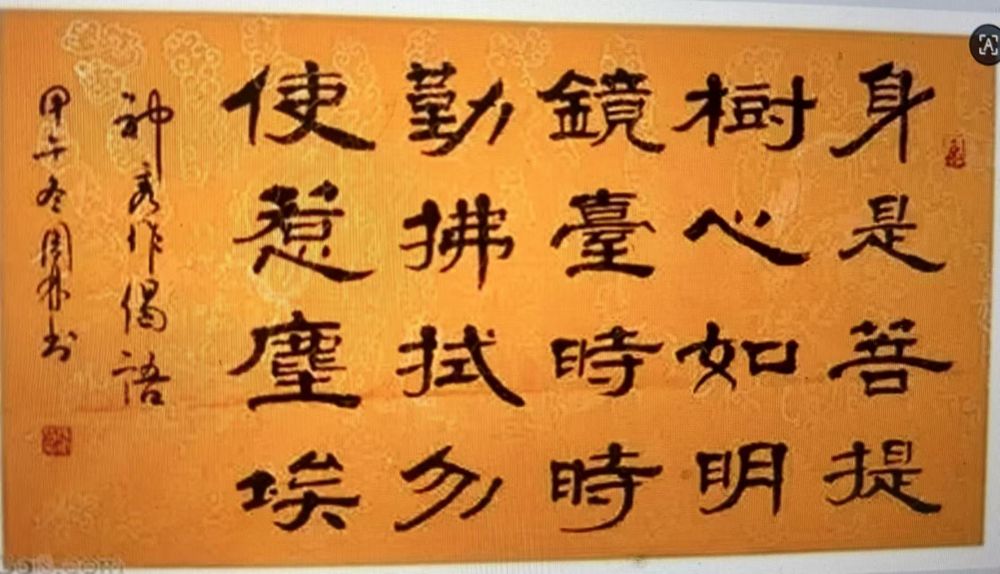 身是菩提
樹心如明
鏡臺時時
勤拂拭勿
使惹塵埃
神秀作偈語
甲午冬周林书